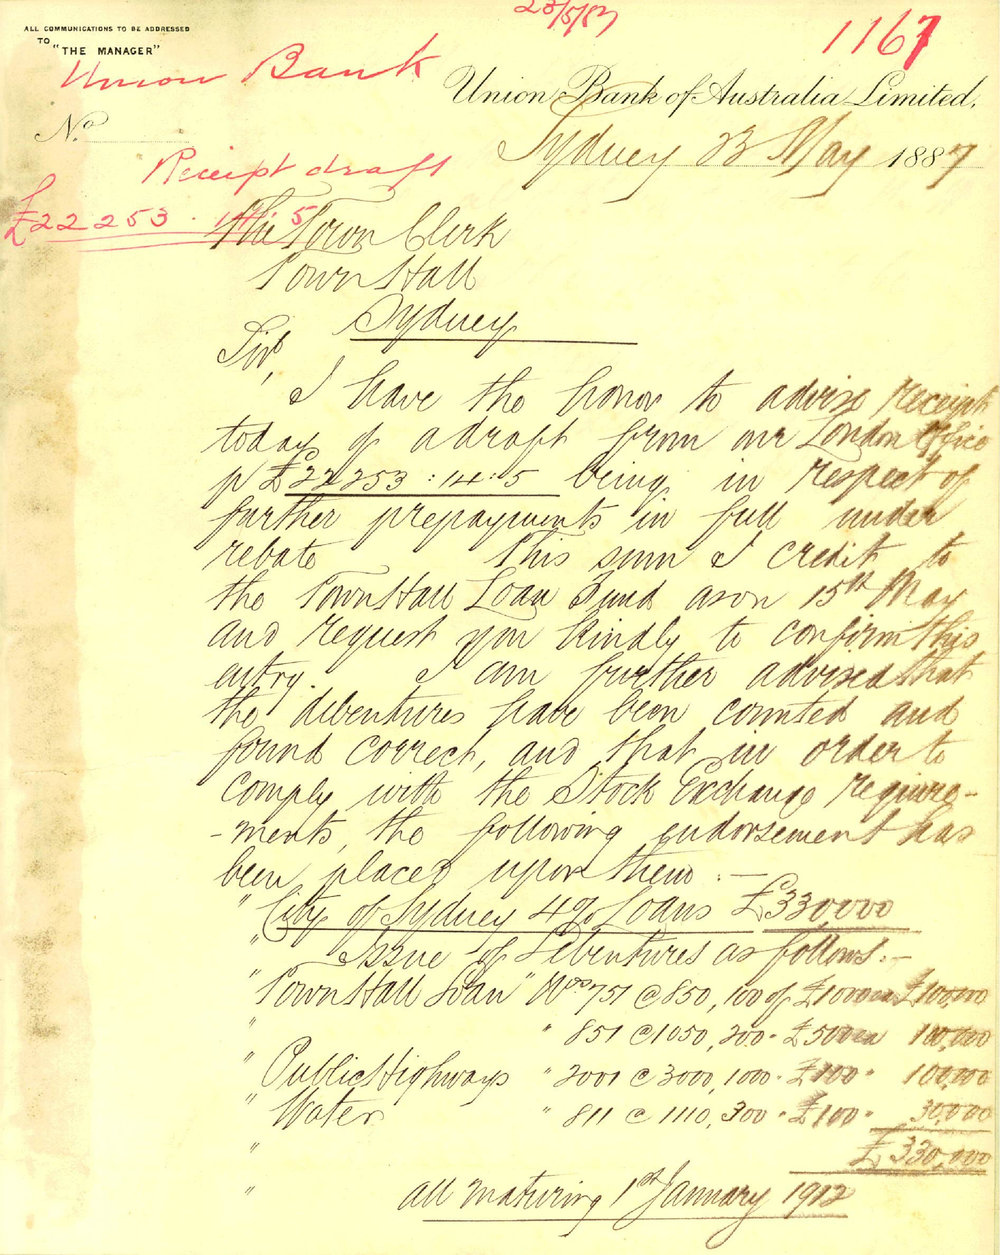 ALL COMMUNICATIONS TO BE ADDRESSED
TO "THE MANAGER"
23/5/87
1167
Union Bank
Union Bank of Australia Limited.
No.
Sydney 23 May 1887
Receipt draft
£22253.14.5
The Town Clerk
Town Hall
Sydney
Sir,
I have the honor to advise receipt
today of a draft from our London Office
p £22253:14:5 being in respect of
further prepayments in full under
rebate This sum I credit to
the Town Hall Loan Fund as on 15th May
and request you kindly to confirm this
entry. I am further advised that
the debentures have been counted and
found correct, and that in order to
comply with the Stock Exchange require-
-ments, the following endorsement has
been placed upon them:—
"City of Sydney 4% Loans £330000
" Issue of Debentures as follows:—
" Town Hall Loan "Nos 751 @ 850, 100 of £1000 ea £100,000
" " 851 @ 1050, 200 " £500 ea 100,000
" Public Highways " 2001 @ 3000, 1000 " £100 " 100,000
" Water " 811 @ 1110, 300 " £100 " 30,000
" £330,000
" all maturing 1st January 1912